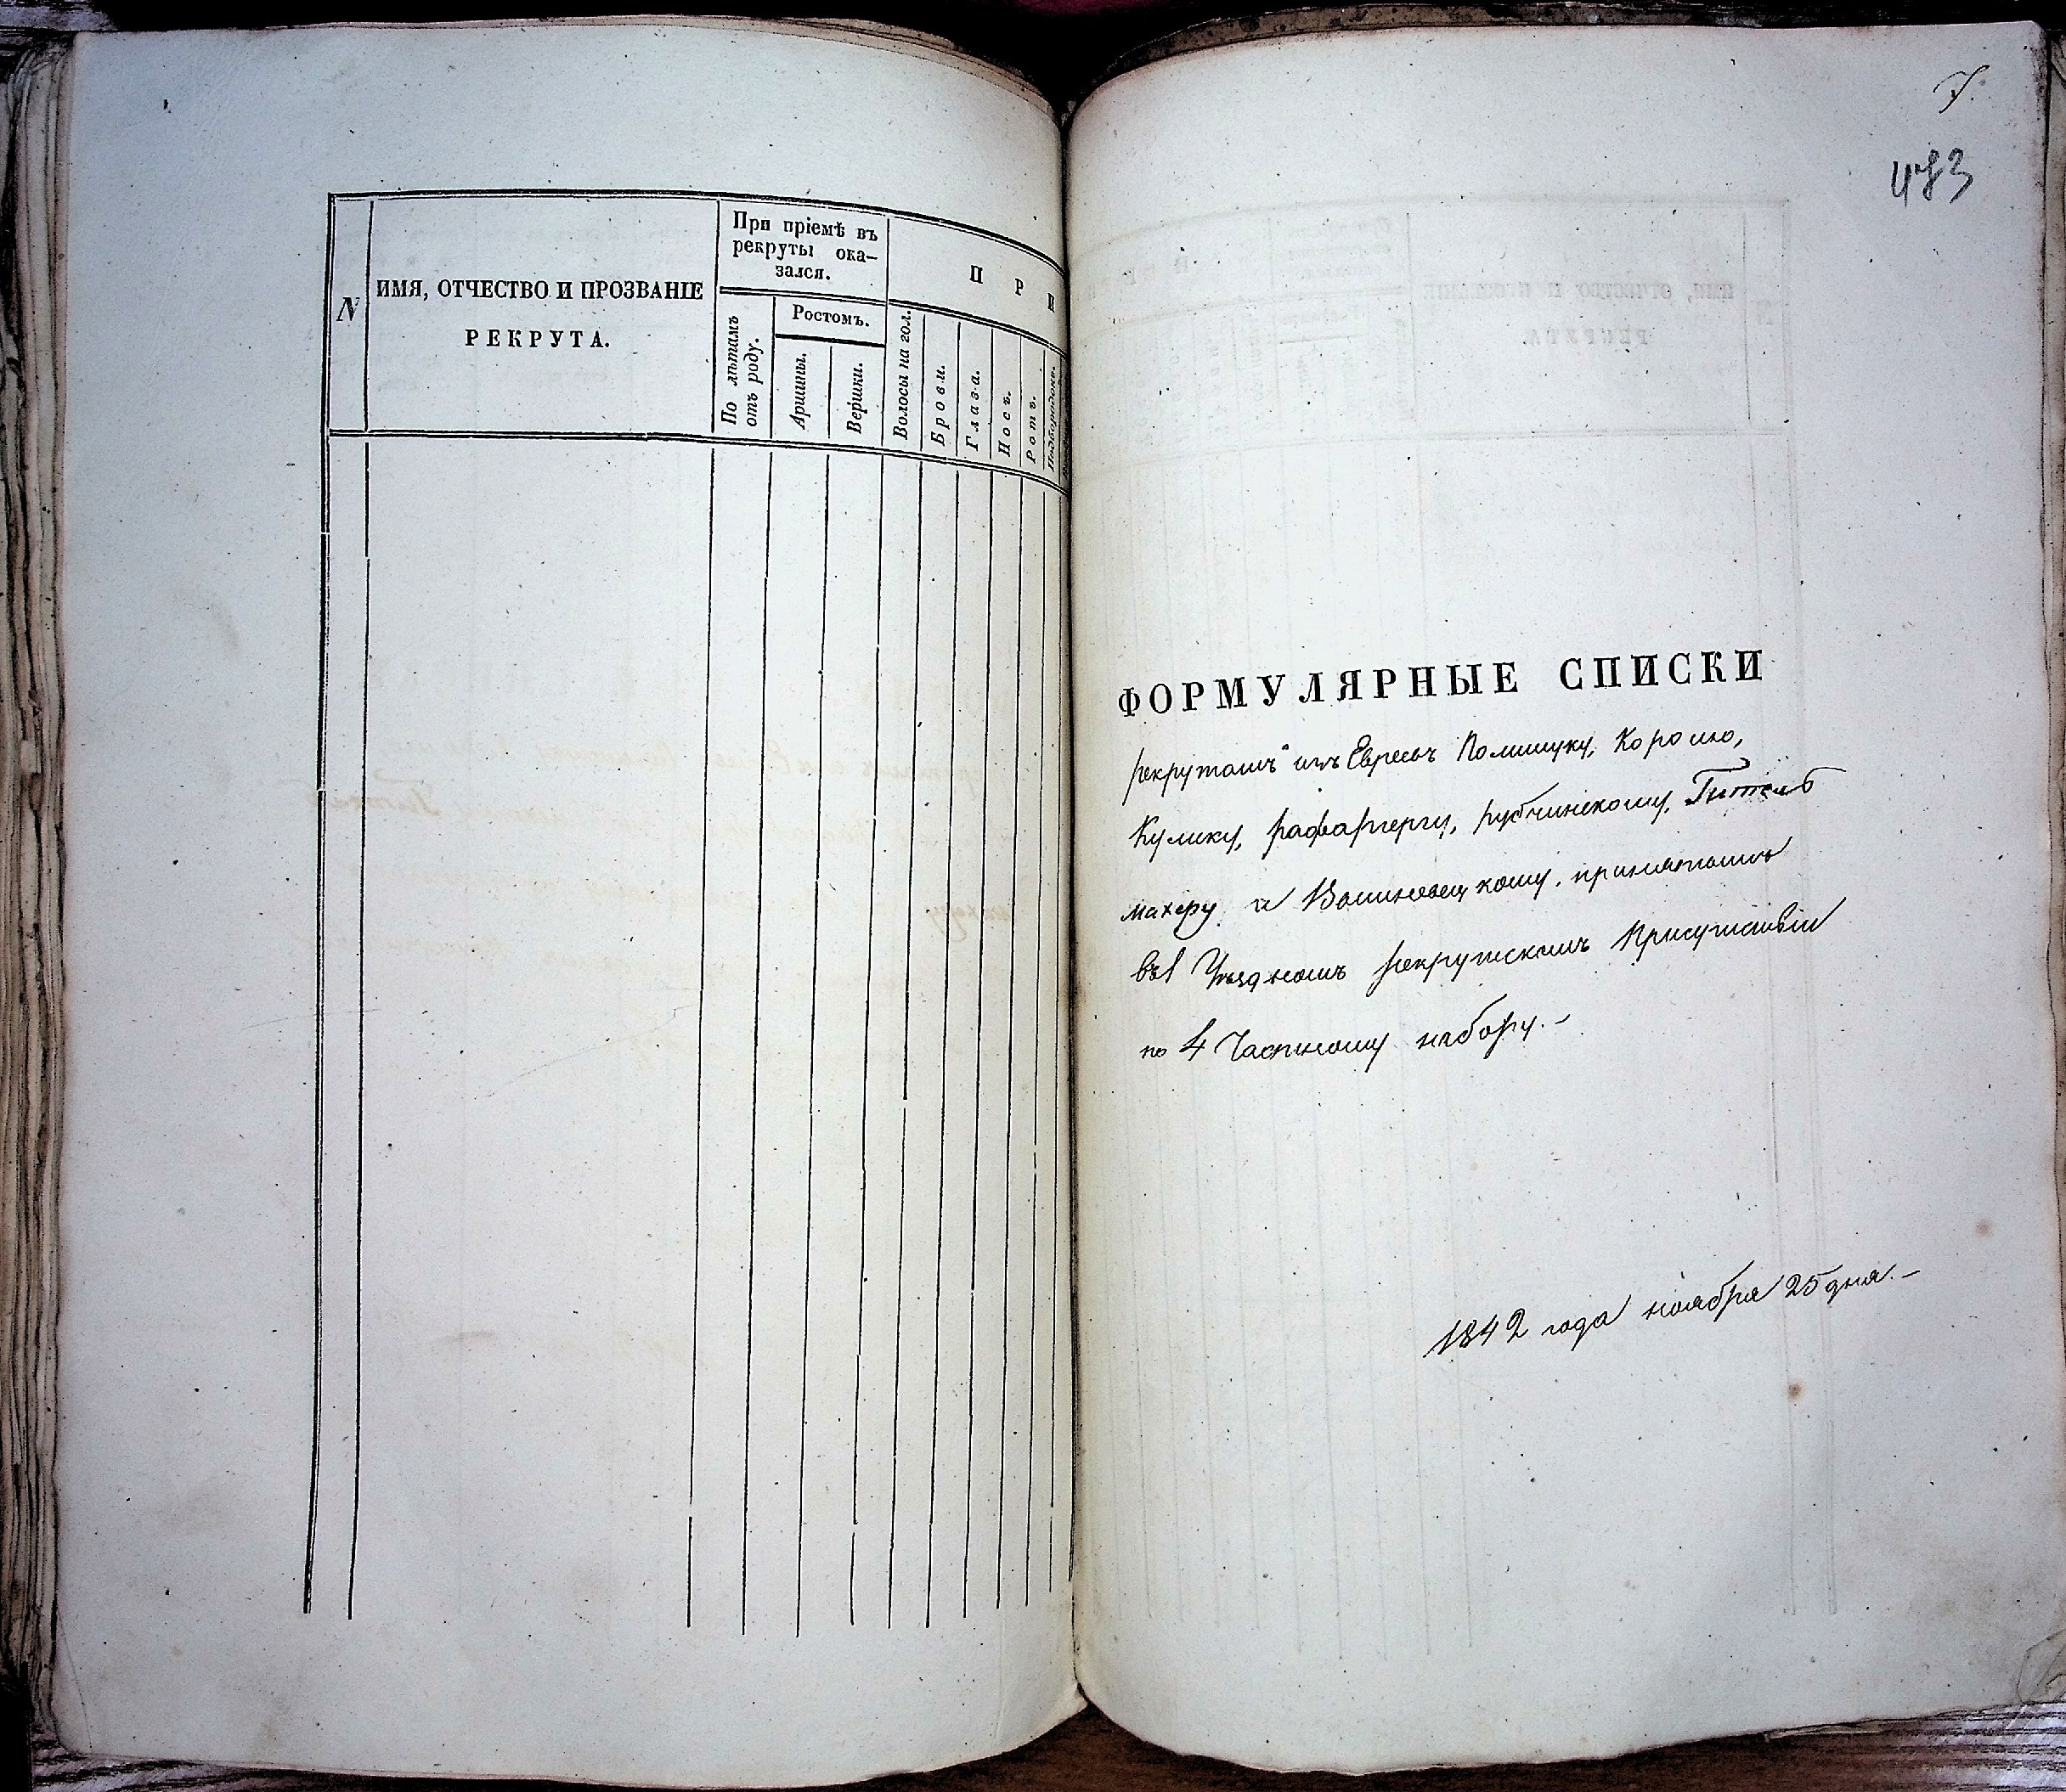 N
ИМЯ, ОТЧЕСТВО И ПРОЗВАНІЕ
РЕКРУТА.
При пріемѣ въ
рекруты ока-
зался.
По лѣтамъ
отъ роду.
Ростомъ.
Аршины.
Вершки.
П Р И
Волосы на гол.
Брови.
Глаза.
Носъ.
Ротъ.
Подбородокъ.
483
ФОРМУЛЯРНЫЕ СПИСКИ
рекрутамъ изъ Евреевъ Полищуку, Королю,
Кулику, рубчинскому, Гитель
махеру и принятымъ
въ 1 Уѣздномъ рекрутскомъ Присутствіи
по 4 Частному набору.-
1842 года ноября 25 дня.-